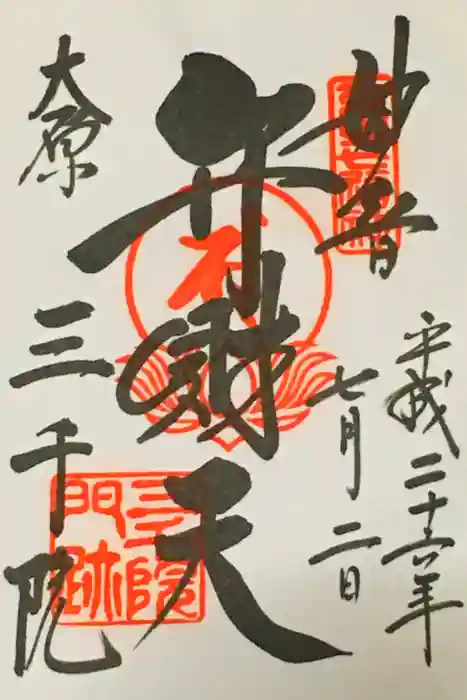 平成二十六年
七月二日
妙音
弁財天
大原
三千院
三千院
門跡